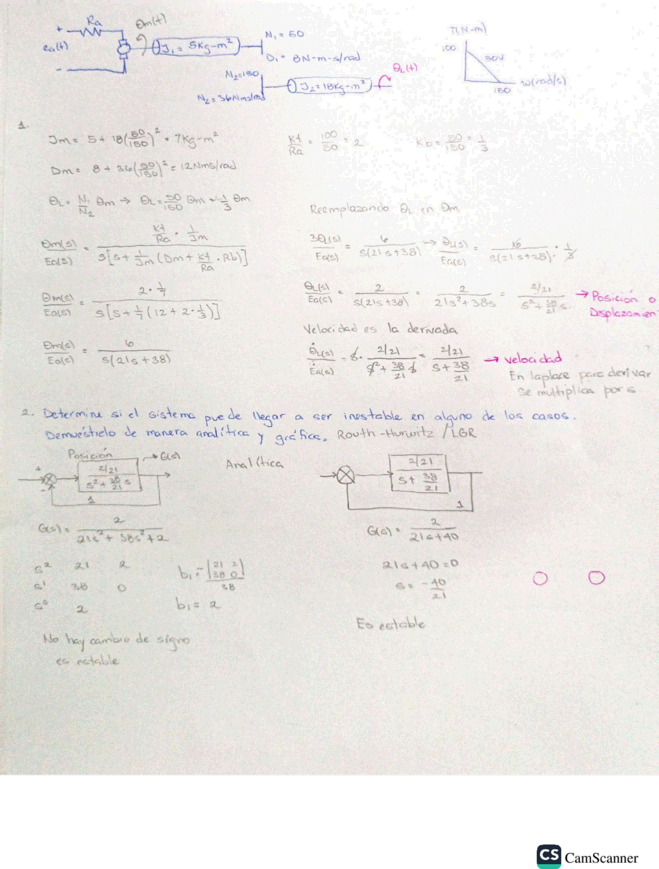 Ra
θm(t)
ea(t)
+
-
J₁ = 5Kg-m²
N₁ = 50
D₁ = 8N-m-s/rad
N₂=150
N₂ = 36Nms/rad
J₂ = 18Kg-m²
θL(t)
T(N-m)
100
50V
150
ω(rad/s)
1.
Jm = 5 + 18(50/150)² = 7Kg-m²
Kt/Ra = 100/50 = 2
Kb = 50/150 = 1/3
Dm = 8 + 36(50/150)² = 12Nms/rad
θL = N₁/N₂ θm → θL = 50/150 θm = 1/3 θm
Reemplazando θL en θm
θm(s)/Ea(s) = (Kt/Ra · 1/Jm) / s[s + 1/Jm (Dm + Kt/Ra · Kb)]
3θL(s)/Ea(s) = 6/s(21s+38) → θL(s)/Ea(s) = 6/s(21s+38) · 1/3
θm(s)/Ea(s) = (2 · 1/7) / s[s + 1/7 (12 + 2 · 1/3)]
θL(s)/Ea(s) = 2/s(21s+38) = 2/21s²+38s = (2/21)/(s² + 38/21 s) → Posición o Desplazamien
Velocidad es la derivada
θm(s)/Ea(s) = 6/s(21s+38)
θ̇L(s)/Ėa(s) = s · (2/21)/(s² + 38/21 s) = (2/21)/(s + 38/21) → velocidad
En laplace para derivar
se multiplica por s
2. Determine si el sistema puede llegar a ser inestable en alguno de los casos.
Demuéstrelo de manera analítica y gráfica. Routh-Hurwitz / LGR
Posición
→ G(s)
Analítica
(2/21)/(s² + 38/21 s)
1
(2/21)/(s + 38/21)
1
G(s) = 2/21s² + 38s² + 2
G(s) = 2/21s+40
s² 21 2
s¹ 38 0
s⁰ 2
b₁ = -|21 2 38 0|/38
b₁ = 2
21s+40=0
s = -40/21
Es estable
No hay cambio de signo
es estable
CS CamScanner